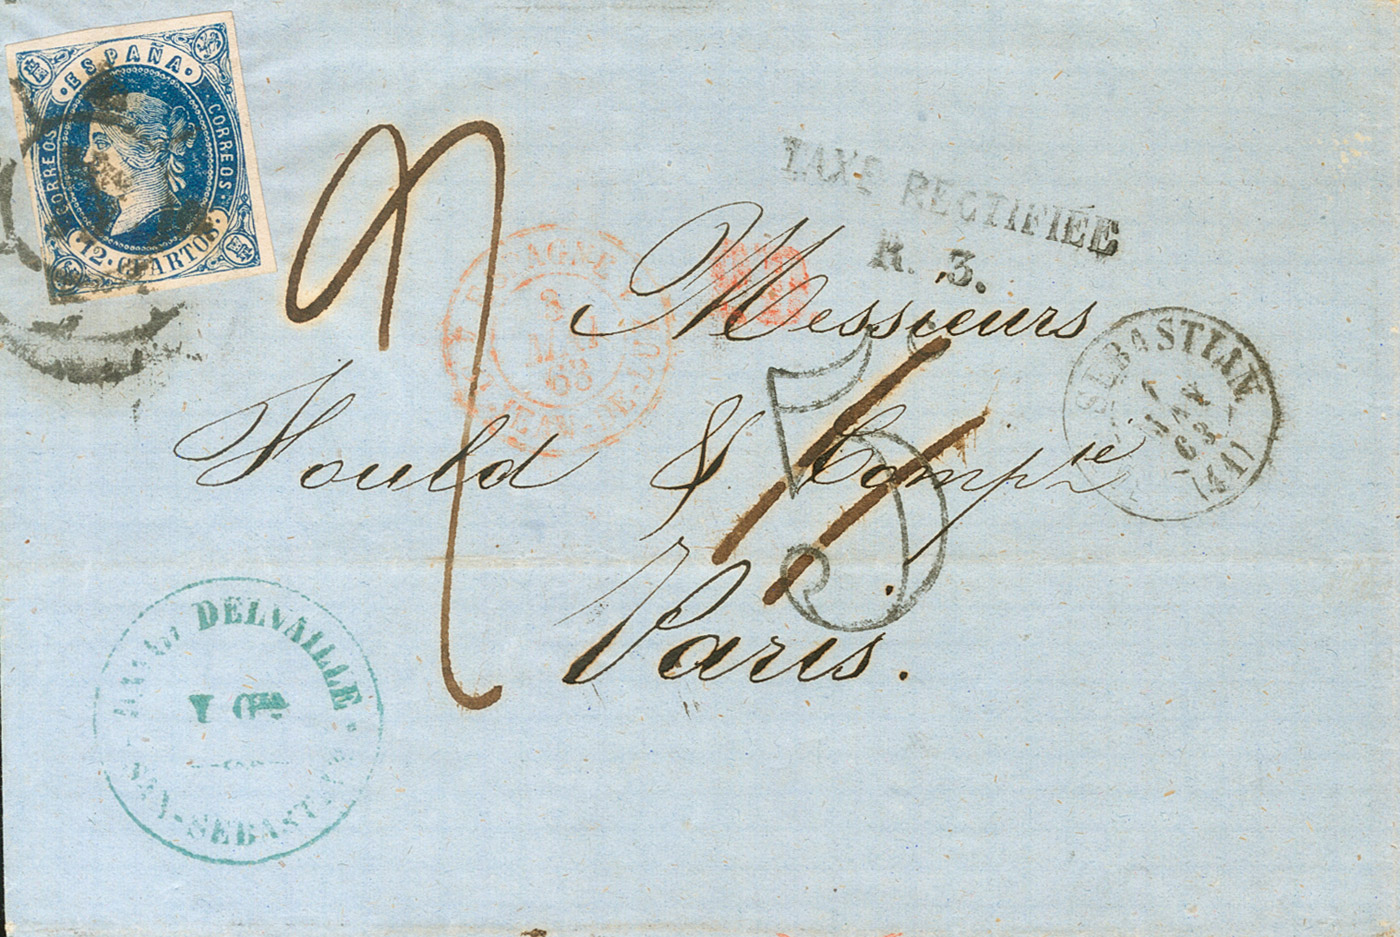 ESPAÑA
CORREOS CORREOS
12 CUARTOS
TAXE RECTIFIÉE
R. 3.
ESPAGNE
8
63
ST JEAN-DE-LUZ
Messieurs
Fould & Compie
Paris.
SEBASTIAN
63
(41)
DELVAILLE
SAN-SEBASTIAN